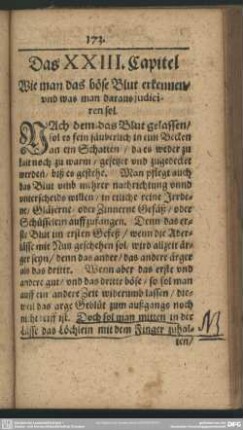 173.
Das XXIII. Capitel
Wie man das böse Blut erkennen/
und was man daraus judici-
ren sol.
NAch dem das Blut gelassen/
sol es fein säuberlich in ein Becken
an ein Schatten / da es weder zu
kalt noch zu warm / gesetzet und zugedecket
werden / biß es gestehe. Man pflegt auch
das Blut umb mehrer nachrichtung unnd
unterscheids willen / in etliche reine Irrde-
ne / Gläserne / oder Zinnerne Gefäß / oder
Schüsselein auff zufangen. Denn das er-
ste Blut im ersten Gefeß / wenn die Ader-
lässe mit Nutz geschehen sol, wird allzeit är-
ger seyn / denn das ander / das andere ärger
als das dritte. Wenn aber das erste und
andere gut / und das dritte böse / so sol man
auff ein andere Zeit widerumb lassen / die-
weil das arge Geblüt zum außgangs noch
nicht reiff ist. Doch sol man mitten in der
Lässe das Löchlein mit dem Finger zuhal-
ten/